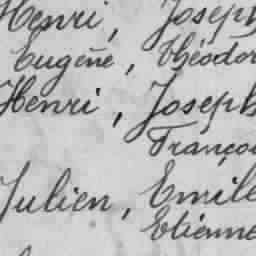 Henri, Joseph
Eugène, Théodor
Henri, Joseph
Françoi
Julien, Emile
Etienne